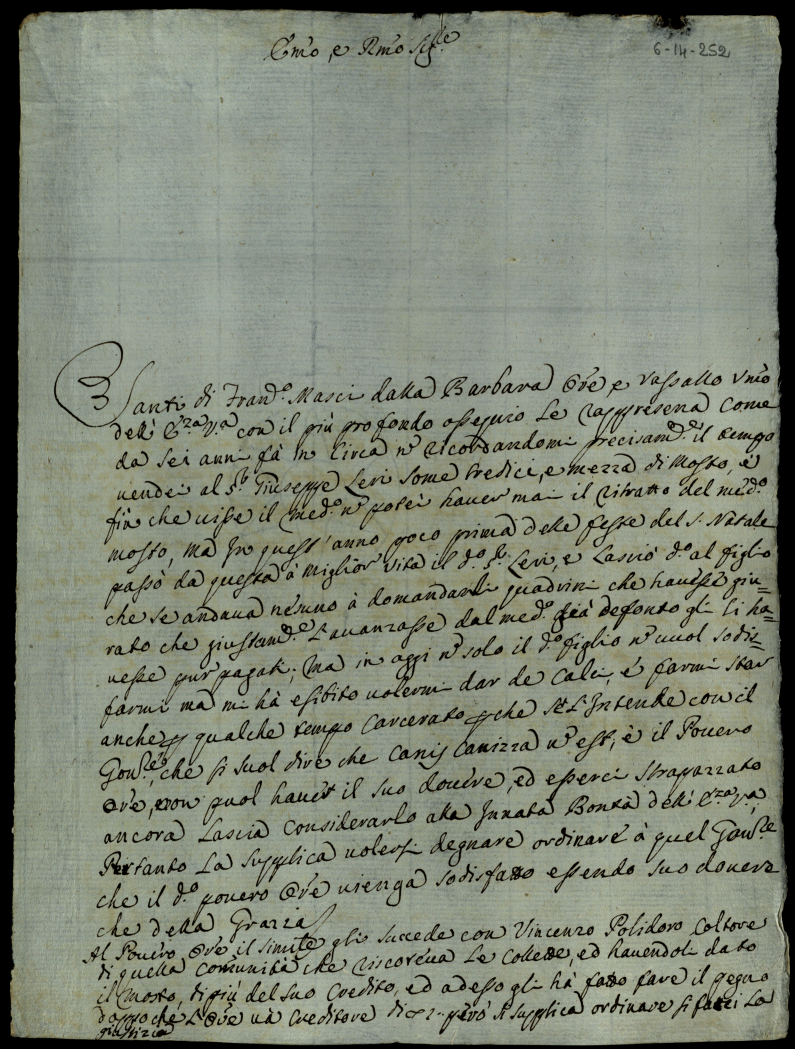 Emo, e Rmo Sigre
6-14-252
Santi di Frano Masci dalla Barbara Ore e Vassallo Vmo
dell' Eza Va con il più profondo ossequio Le rappresena come
da sei anni fà in Circa no ricordandomi precisamte il tempo
vendei al Sr Giuseppe Levi some tredici, e mezza di Mosto, e
fin che visse il medo no potei haver mai il ritratto del medo
mosto, ma in quest'anno poco prima delle feste del S. Natale
passò da questa à miglior vita il do Sr Levi, e lasciò do al figlio
che se andava nesuno à domandarli quadrini che havesse giu=
rato che giustamte L'avanzasse dal medo già defonto gli li ha=
vesse pur pagati; Ma in oggi no solo il do figlio no vuol sodis=
farmi ma mi hà esibito volermi dar de Calci, e farmi star
anche p qualche tempo Carcerato pche St L'Intende con il
Govre, che si suol dire che Canis Canizza no est, è il Povero
Ore, non puol haver il suo dovere, ed esserci strapazzato
ancora Lascia Considerarlo alla Innata Bontà dell' Eza Va,
Pertanto La Supplica volersi degnare ordinare à quel Govre
che il do povero Ore vienga sodisfatto essendo suo dovere
che della Grazia
Al Povero Ore il simile gli succede con Vincenzo Polidoro Coltore
di quella Comunità che riscoteva Le Collette, ed havendoli dato
il Mosto, di più del suo Credito, ed adesso gli hà fatto fare il pegno
doppo che L'Ore và Creditore di però Supplica ordinare si facci La
giustizia